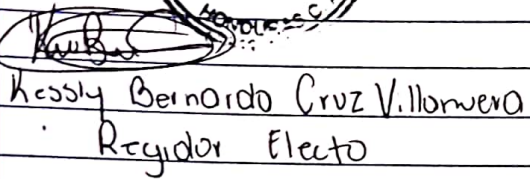 HONDURAS C
Kessly Bernardo Cruz Villanuera
Regidor Electo